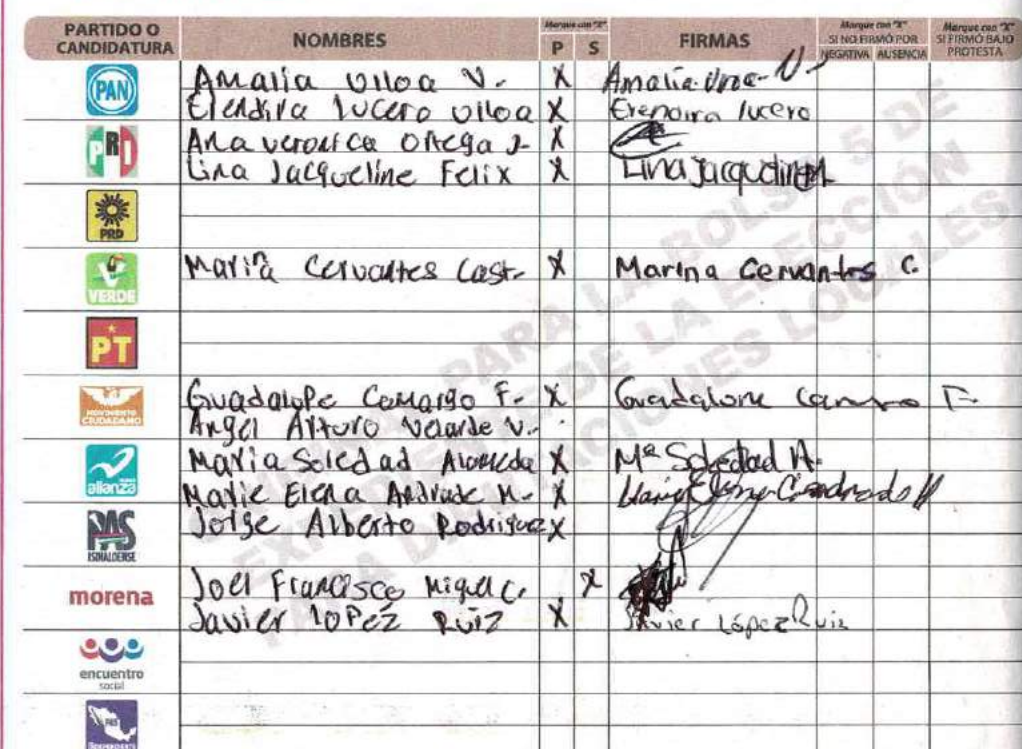 PARTIDO O CANDIDATURA NOMBRES Marque con "X" P S FIRMAS Marque con "X" SI NO FIRMÓ POR NEGATIVA AUSENCIA Marque con "X" SI FIRMÓ BAJO PROTESTA
PAN Amalia Ulloa V. X Amalia
Erendira Lucero Ulloa X Erendira lucero
PRI Ana veronica Ortega J. X
Lina Jacqueline Felix X Lina Jacqueline
PRD
VERDE Marina Cervantes Cast. X Marina Cervantes C.
PT
MOVIMIENTO CIUDADANO Guadalupe Camargo F. X Guadalupe F.
Angel Arturo Velarde V.
alianza Maria Soledad Alameda X Mª Soledad A.
Marie Elena Andrade M. X
PAS SINALOENSE Jorge Alberto Rodriguez X
morena Joel Francisco Miguel C. X
Javier LoPez Ruiz X Javier López Ruiz
encuentro social
PARA LA BOLSA 5 DE
EXPEDIENTE DE LA ELECCIÓN
PARA DIPUTACIONES LOCALES